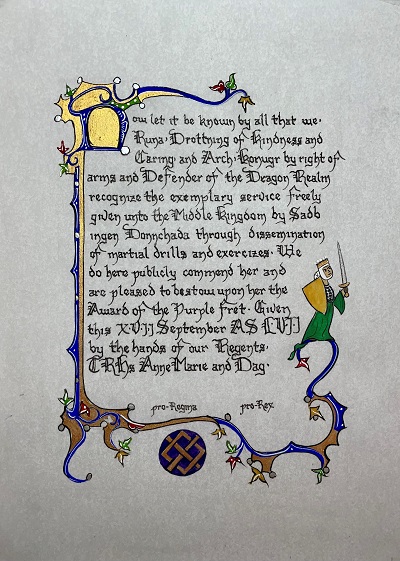 Now let it be known by all that we.
Runa, Drottning of Kindness and
Caring, and Arch, Konugr by right of
arms and Defender of the Dragon Realm
recognize the exemplary service freely
given unto the Middle Kingdom by Sadb
ingen Donnchada through dissemination
of martial drills and exercises. We
do here publicly commend her and
are pleased to bestow upon her the
Award of the Purple Fret. Given
this XVII September AS LVII
by the hands of our Regents,
TRHs AnneMarie and Dag.
pro-Regina pro-Rex